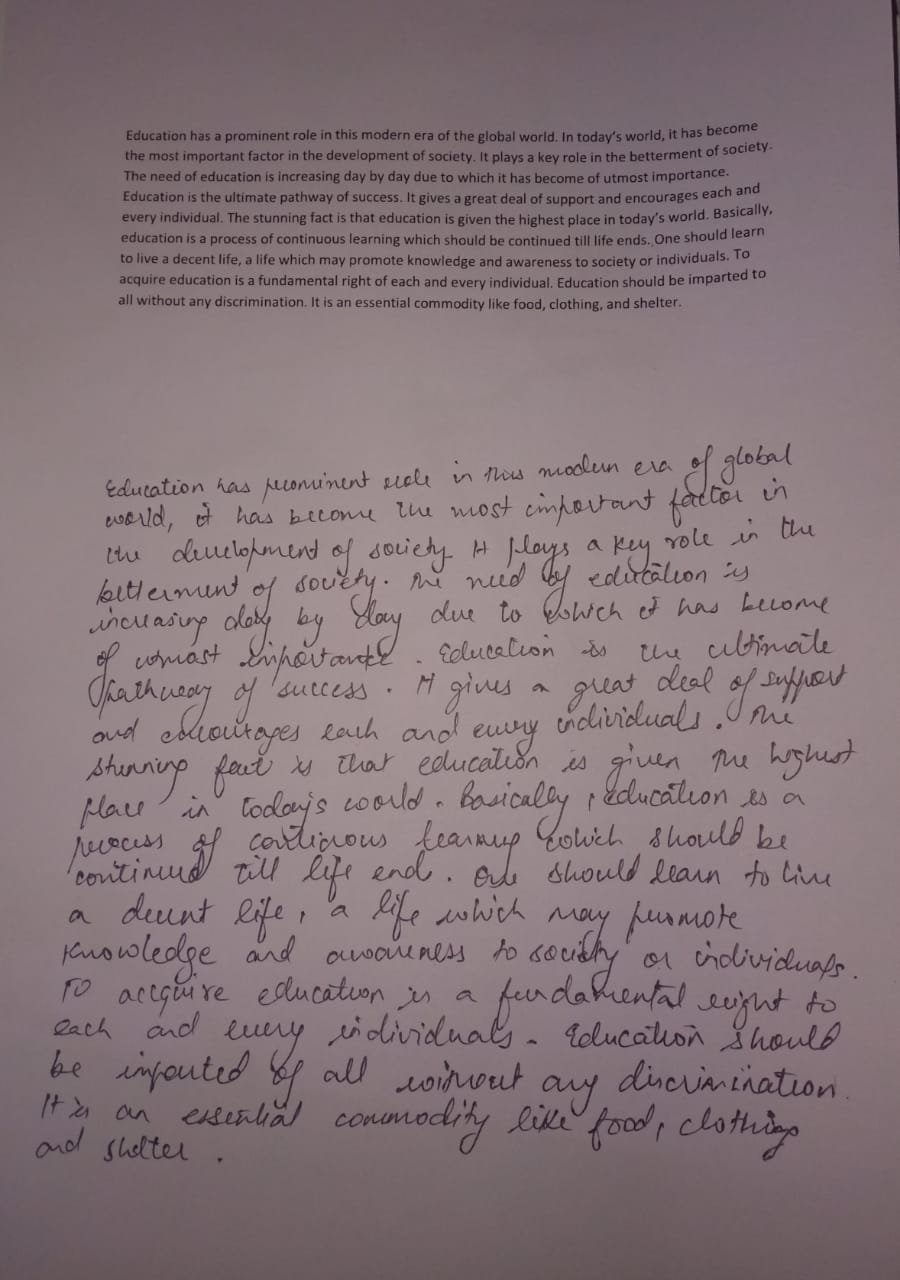 Education has a prominent role in this modern era of the global world. In today's world, it has become
the most important factor in the development of society. It plays a key role in the betterment of society.
The need of education is increasing day by day due to which it has become of utmost importance.
Education is the ultimate pathway of success. It gives a great deal of support and encourages each and
every individual. The stunning fact is that education is given the highest place in today's world. Basically,
education is a process of continuous learning which should be continued till life ends. One should learn
to live a decent life, a life which may promote knowledge and awareness to society or individuals. To
acquire education is a fundamental right of each and every individual. Education should be imparted to
all without any discrimination. It is an essential commodity like food, clothing, and shelter.
Education has prominent role in this modern era of global
world, it has become the most important factor in
the development of society It plays a key role in the
betterment of society. The need of education is
increasing day by day due to which it has become
of utmost importante. Education is the ultimate
pathway of success. It gives a great deal of support
and encourages each and every individuals. The
stunning fact is that education is given the highest
place in today's world. Basically, education is a
process of contiguous learning which should be
continued till life end. One should learn to live
a decent life, a life which may promote
knowledge and awareness to society or individuals.
To accquire education is a fundamental right to
each and every individuals. Education should
be imparted of all without any discrimination.
It is an essential commodity like food, clothing
and shelter.